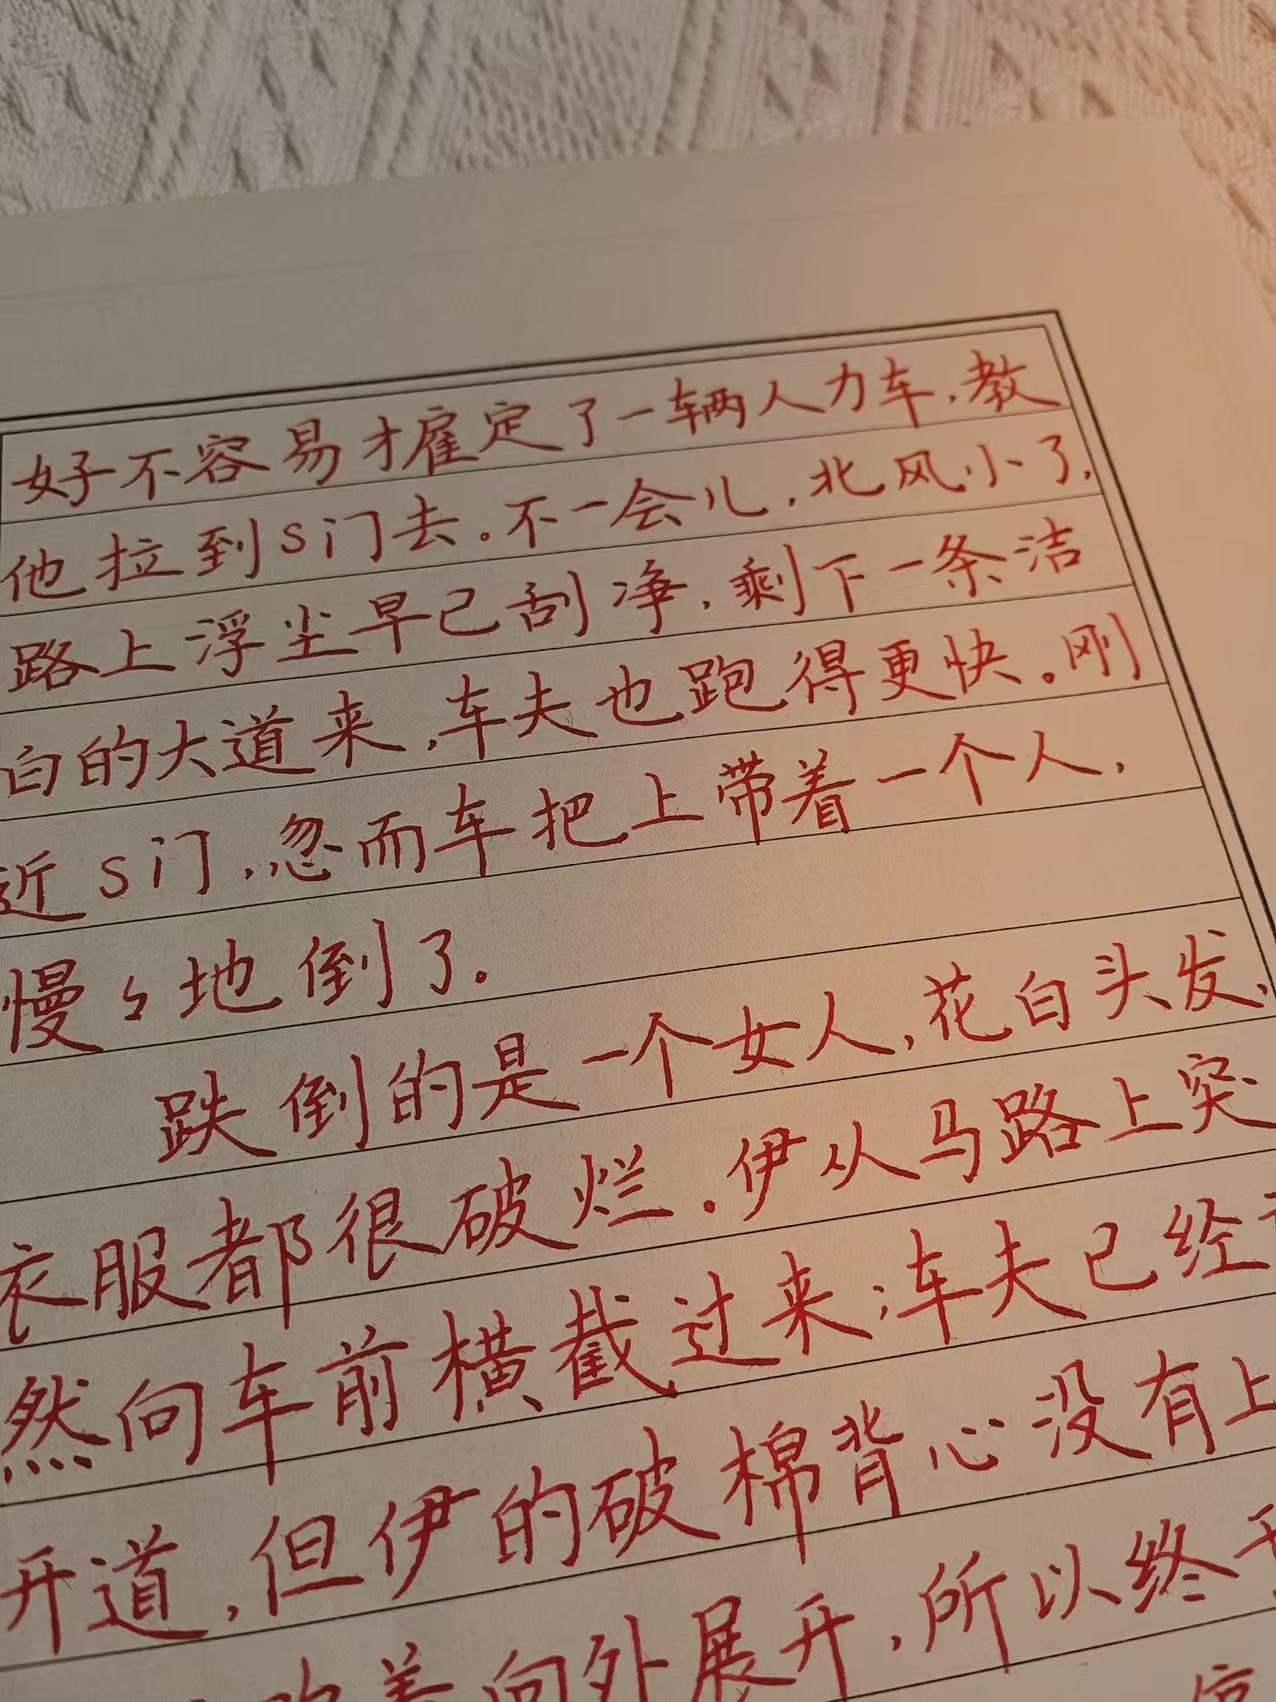 好不容易才雇定了一辆人力车,教
他拉到S门去。不一会儿,北风小了,
路上浮尘早已刮净,剩下一条洁
白的大道来,车夫也跑得更快。刚
近S门,忽而车把上带着一个人,
慢々地倒了。
跌倒的是一个女人,花白头发,
衣服都很破烂。伊从马路上突
然向车前横截过来;车夫已经
开道,但伊的破棉背心没有上
向外展开,所以终于